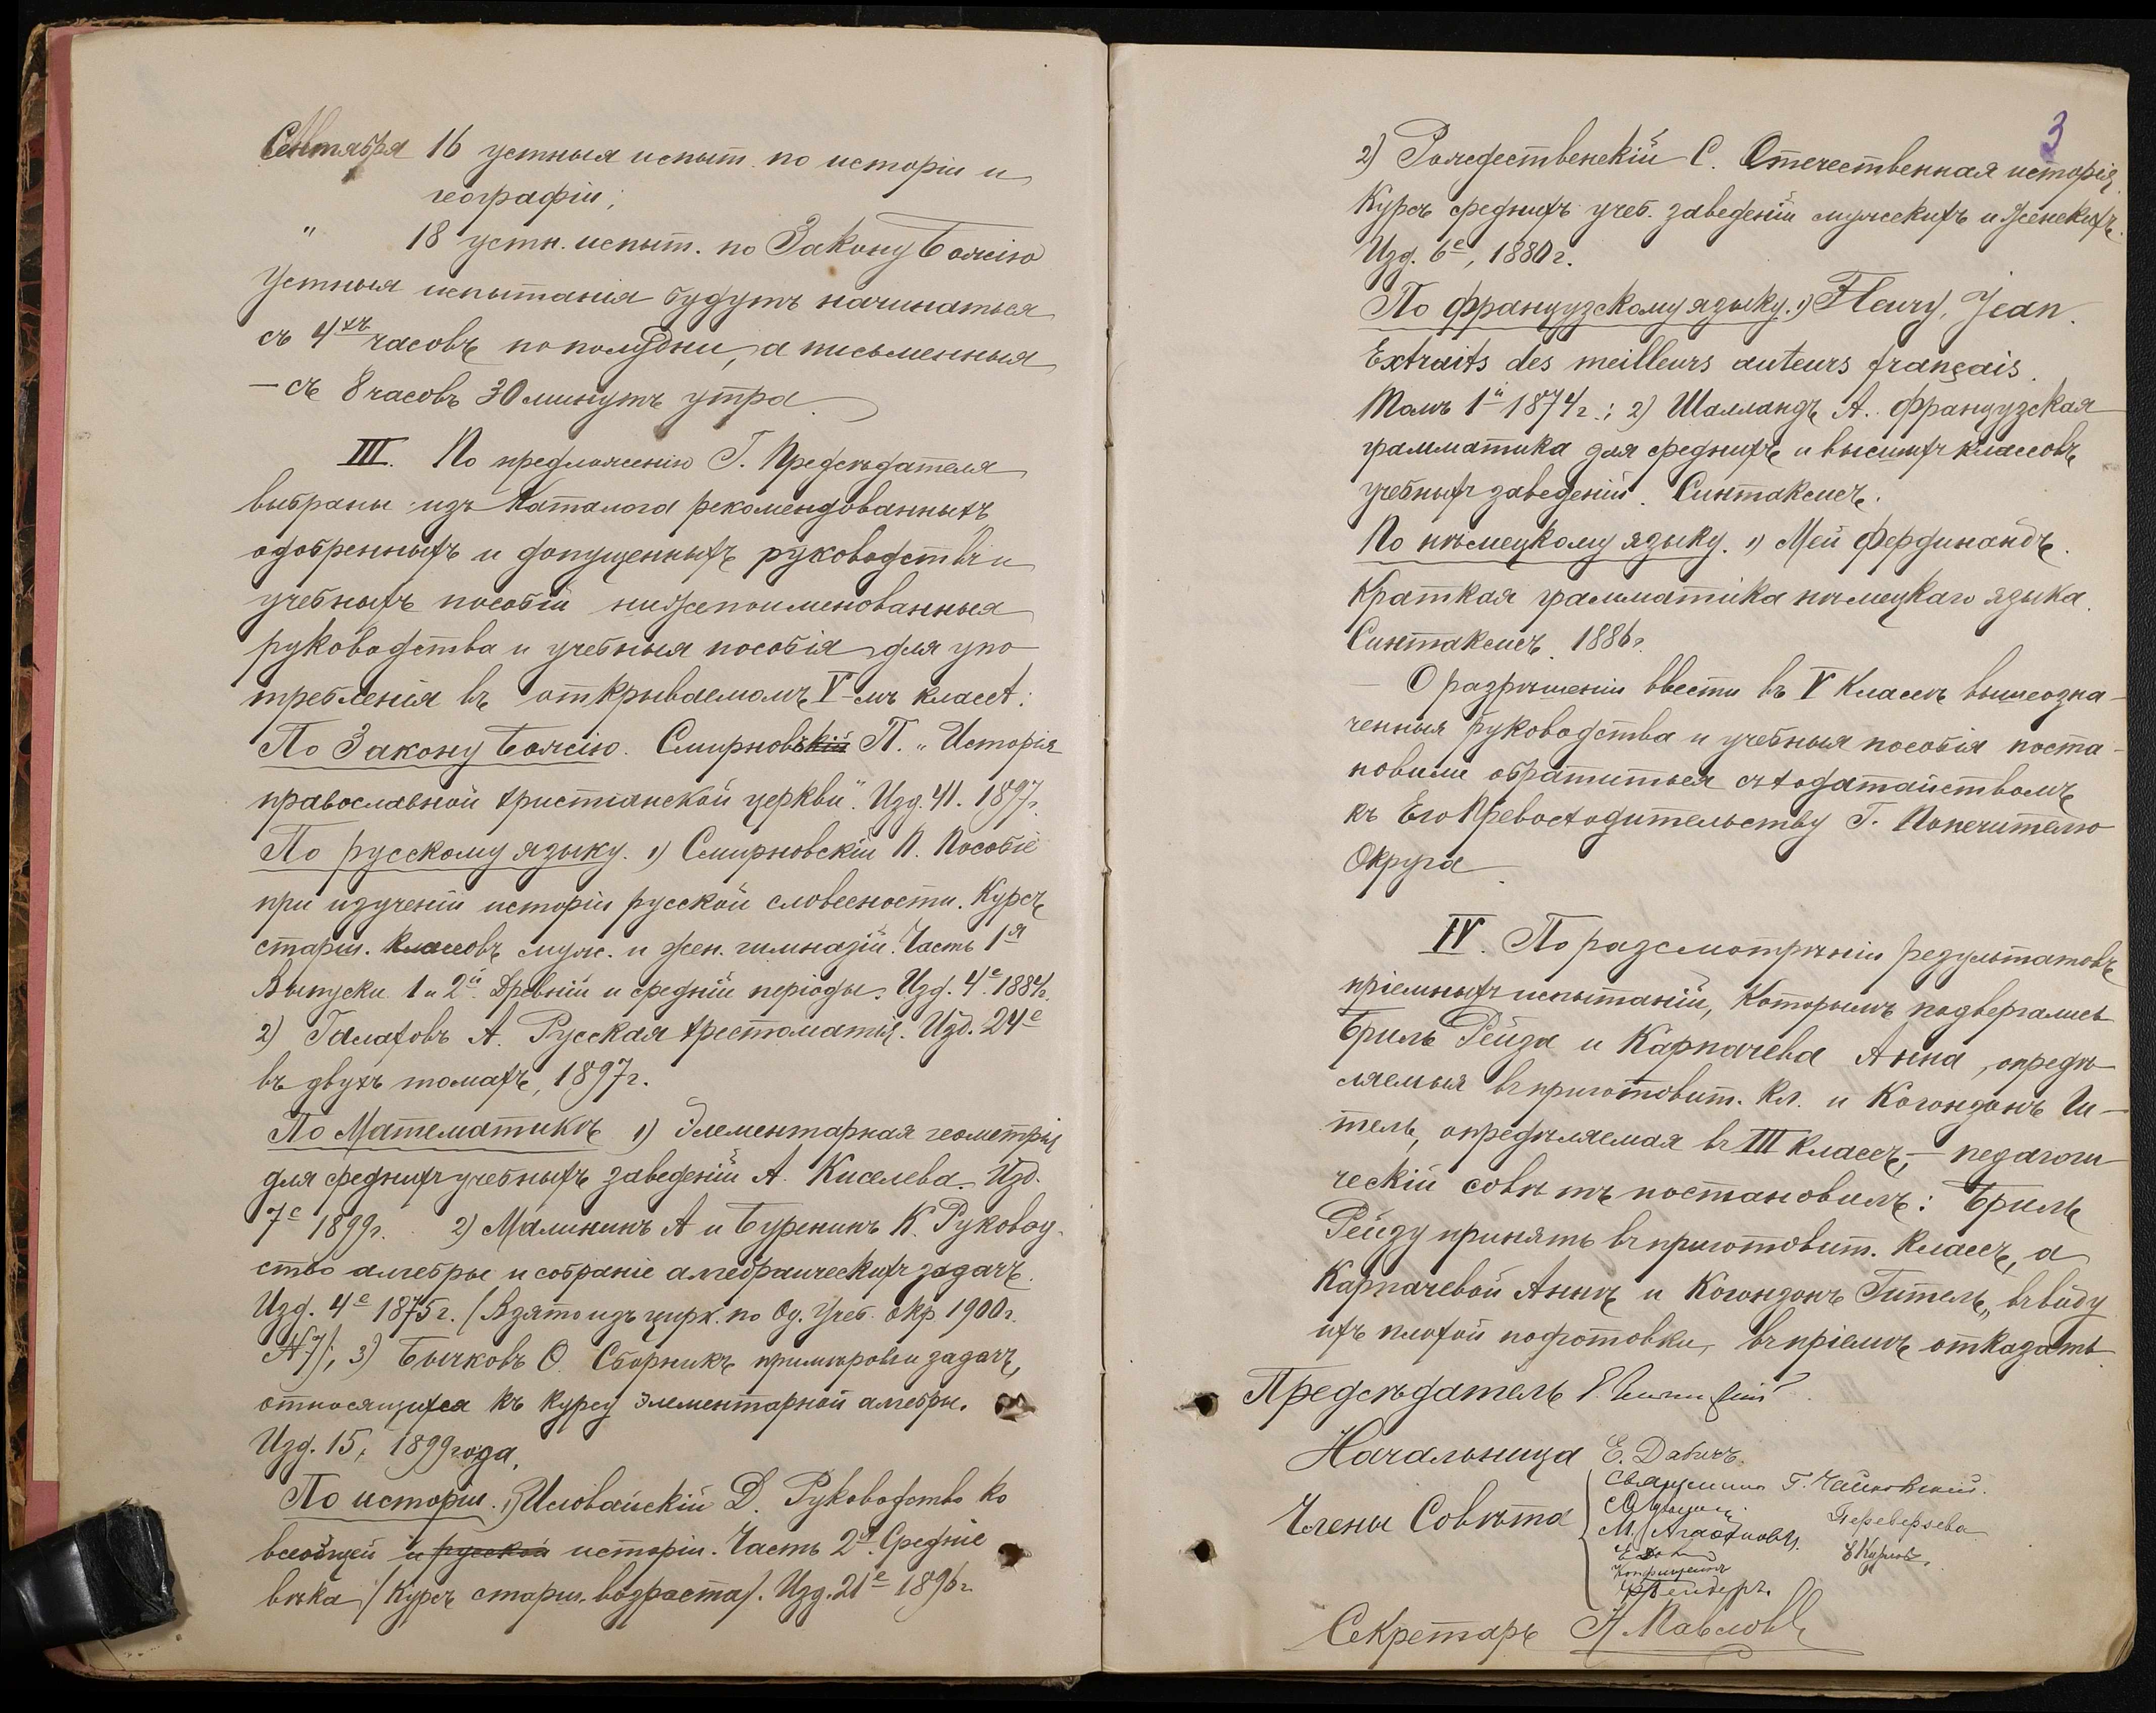 Сентября 16 устныя испыт. по исторіи и
географіи;
" 18 устн. испыт. по Закону Божію
Устныя испытанія будутъ начинаться
съ 4хъ часовъ пополудни, а письменныя
— съ 8 часовъ 30 минутъ утра.
III. По предложенію Г. Предсѣдателя
выбраны изъ Каталога рекомендованныхъ
одобренныхъ и допущенныхъ руководствъ и
учебныхъ пособій нижепоименованныя
руководства и учебныя пособія для упо-
требленія въ открываемомъ V-мъ классѣ:
По Закону Божію. Смирновскій П. „Исторія
православной христіанской церкви". Изд. 41. 1897г.
По русскому языку. 1) Смирновскій П. Пособіе
при изученіи исторіи русской словесности. Курсъ
старш. классовъ муж. и жен. гимназій. Часть 1я
Выпуски 1 и 2й. Древній и средній періоды. Изд. 4е. 1884г.
2) Галаховъ А. Русская хрестоматія. Изд. 24е
въ двухъ томахъ, 1897г.
По Математикѣ 1) Элементарная геометрія
для среднихъ учебныхъ заведеній А. Киселева. Изд.
7е 1899г. 2) Малининъ А и Буренинъ К. Руковод-
ство алгебры и собраніе алгебраическихъ задачъ.
Изд. 4е 1875г. (Взято изъ цирк. по Од. Учеб. окр. 1900г.
№7); 3) Бычковъ О. Сборникъ примѣровъ и задачъ,
относящихся къ курсу элементарной алгебры.
Изд. 15, 1899 года.
По исторіи. 1) Иловайскій Д. Руководство ко
всеобщей и русской исторіи. Часть 2я. Средніе
вѣка (Курсъ старш. возраста). Изд. 21е 1896г.
3
2) Рождественскій С. Отечественная исторія.
Курсъ среднихъ учеб. заведеній мужскихъ и женскихъ.
Изд. 6е, 1880г.
По французскому языку. 1) Fleury, Jean.
Extraits des meilleurs auteurs français.
Томъ 1й 1874г.; 2) Шалландъ А. Французская
грамматика для среднихъ и высшихъ классовъ
учебныхъ заведеній. Синтаксисъ.
По нѣмецкому языку. 1) Мей Фердинандъ.
Краткая грамматика нѣмецкаго языка.
Синтаксисъ. 1886г.
— О разрѣшеніи ввести въ V Классъ вышеозна-
ченныя руководства и учебныя пособія поста-
новили обратиться съ ходатайствомъ
къ Его Превосходительству Г. Попечителю
Округа.
IV. По разсмотрѣніи результатовъ
пріемныхъ испытаній, которымъ подвергались
Бриль Рейза и Карпачева Анна, опредѣ-
ляемыя въ приготовит. кл. и Когондонъ Ги-
тель, опредѣляемая въ III классъ, — педагоги-
ческій совѣтъ постановилъ: Бриль
Рейзу принять въ приготовит. классъ, а
Карпачевой Аннѣ и Когондонъ Гитель, въ виду
ихъ плохой подготовки, въ пріемѣ отказать
Предсѣдатель
Начальница Е. Дабичъ.
Священникъ Г. Чайковскій.
Члены Совѣта
Переверзева
М. Агаѳонова.
Секретарь Н. Павловъ